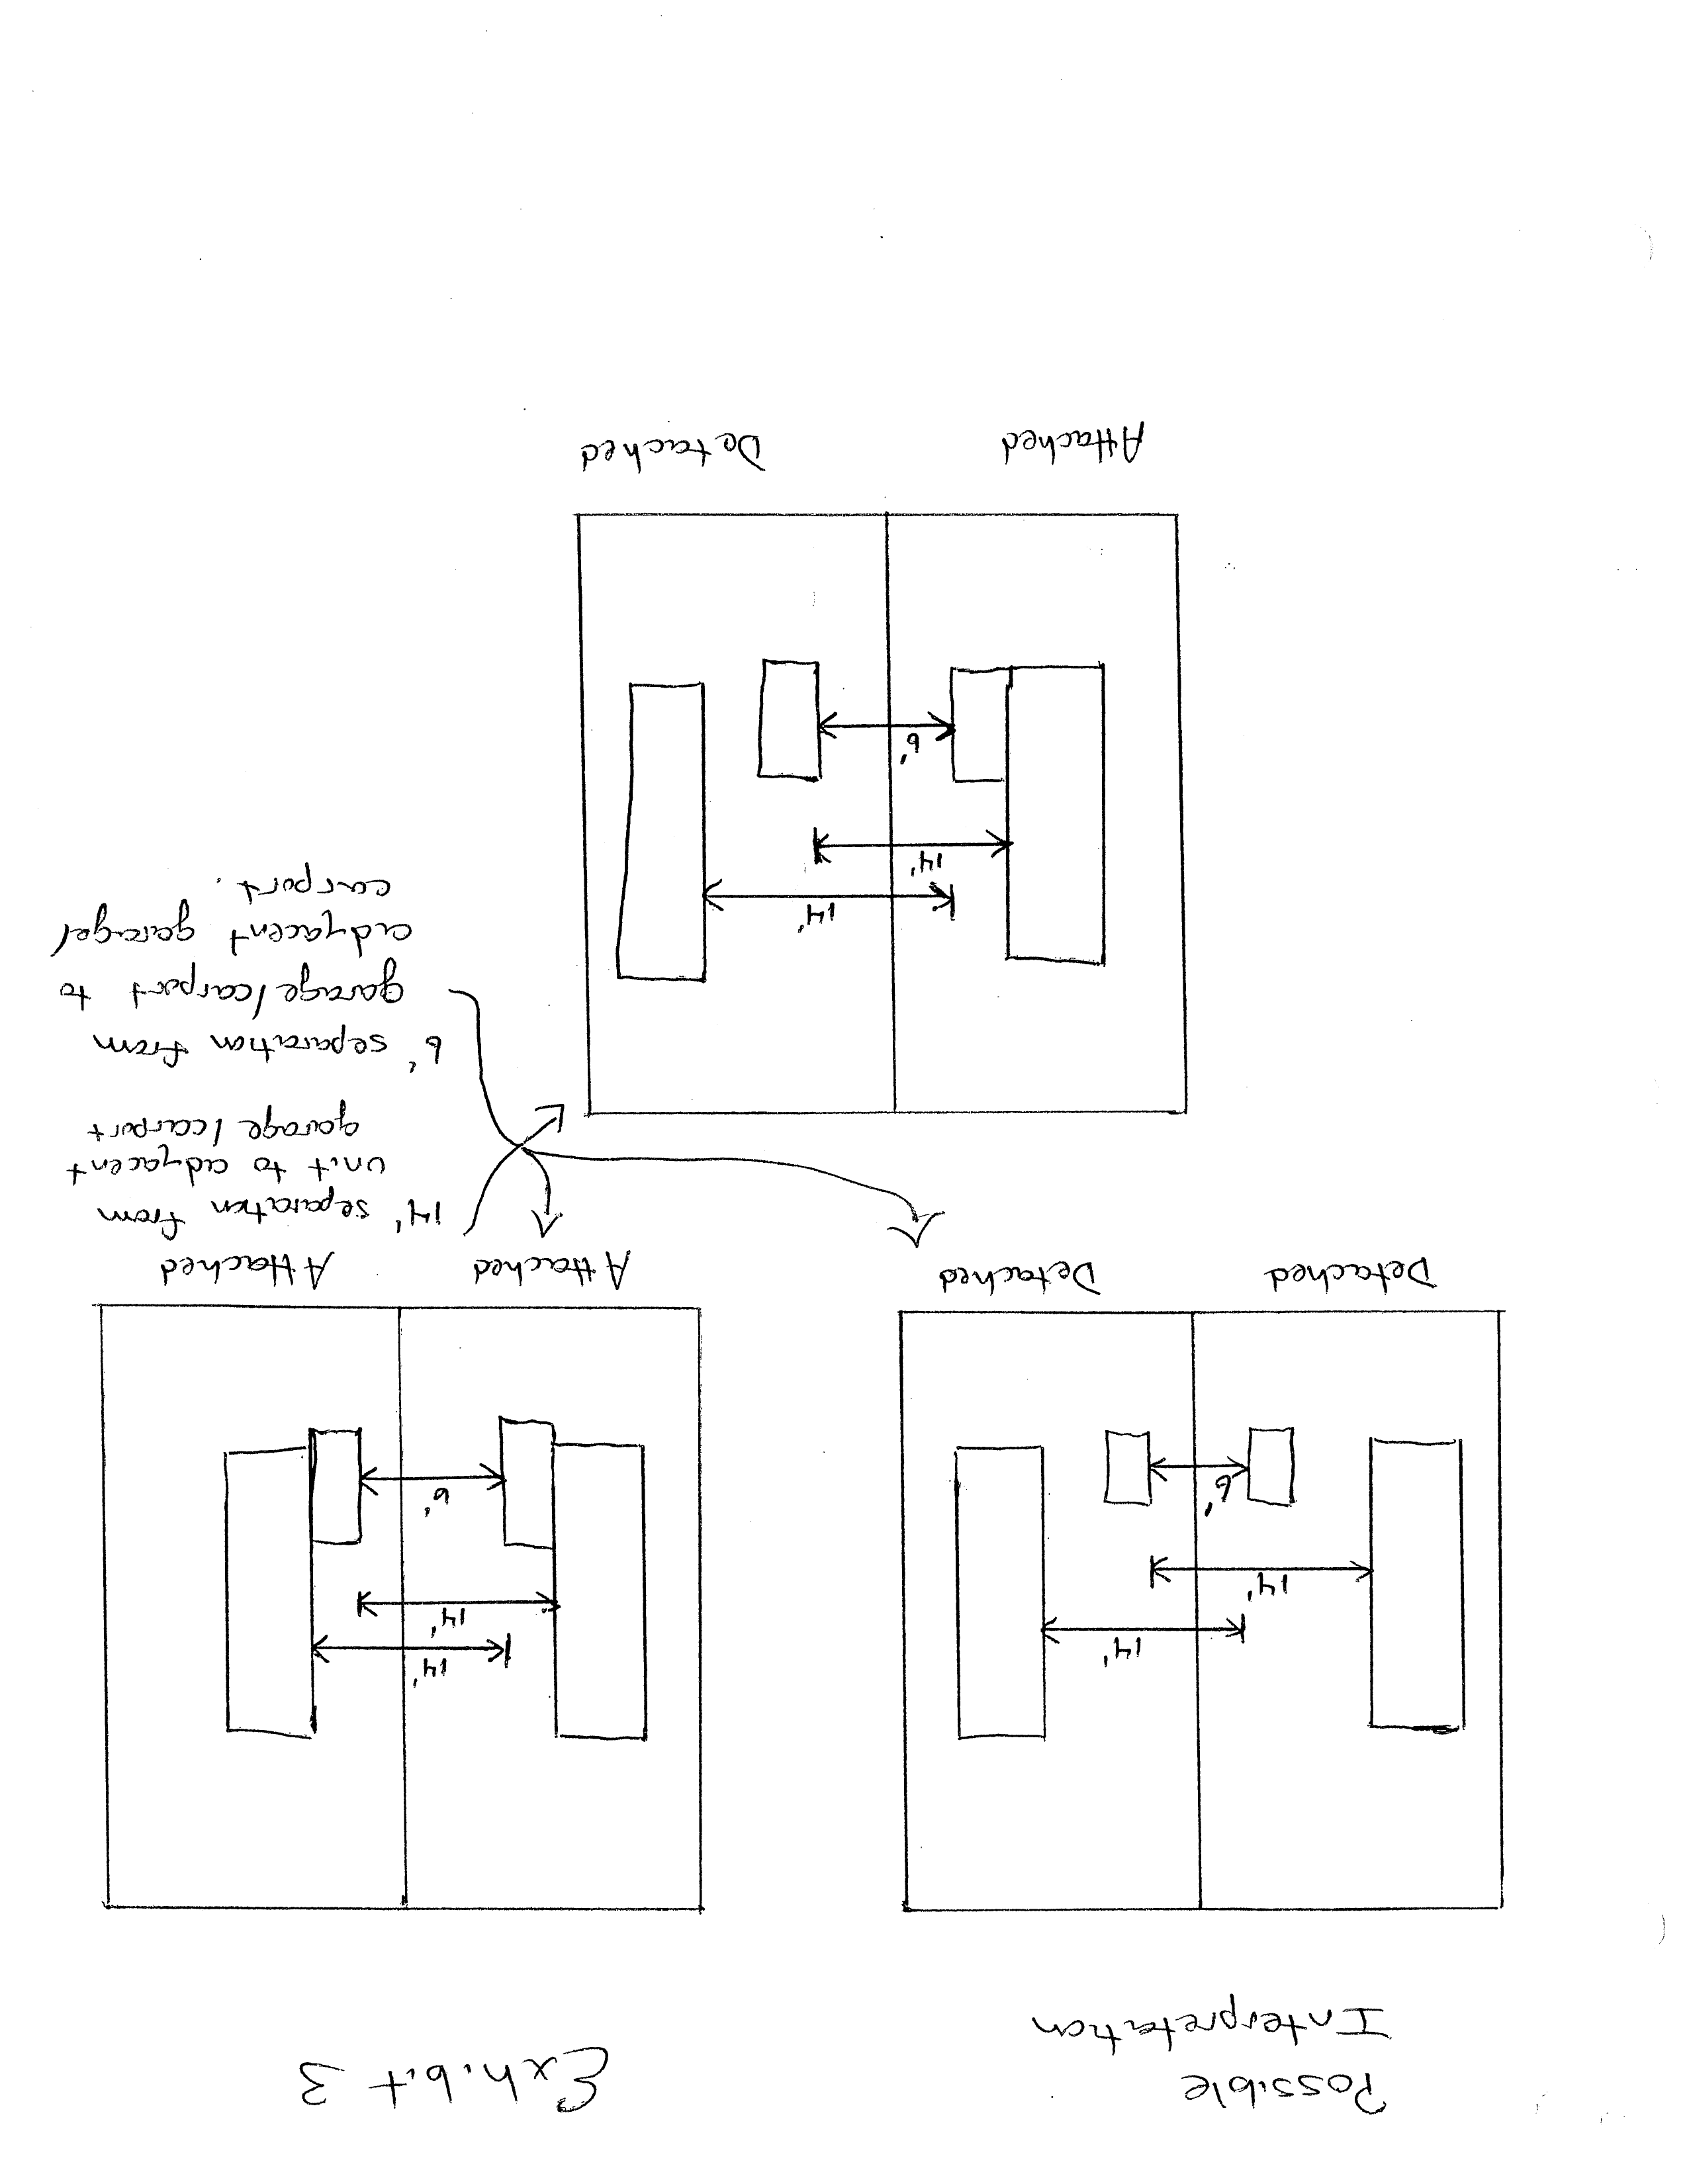 Possible
Interpretation
Exhibit 3
14'
14'
6'
Detached Detached
14'
14'
6'
Attached Attached
14' separation from
unit to adjacent
garage/carport
6' separation from
garage/carport to
adjacent garage/
carport.
14'
14'
6'
Attached Detached